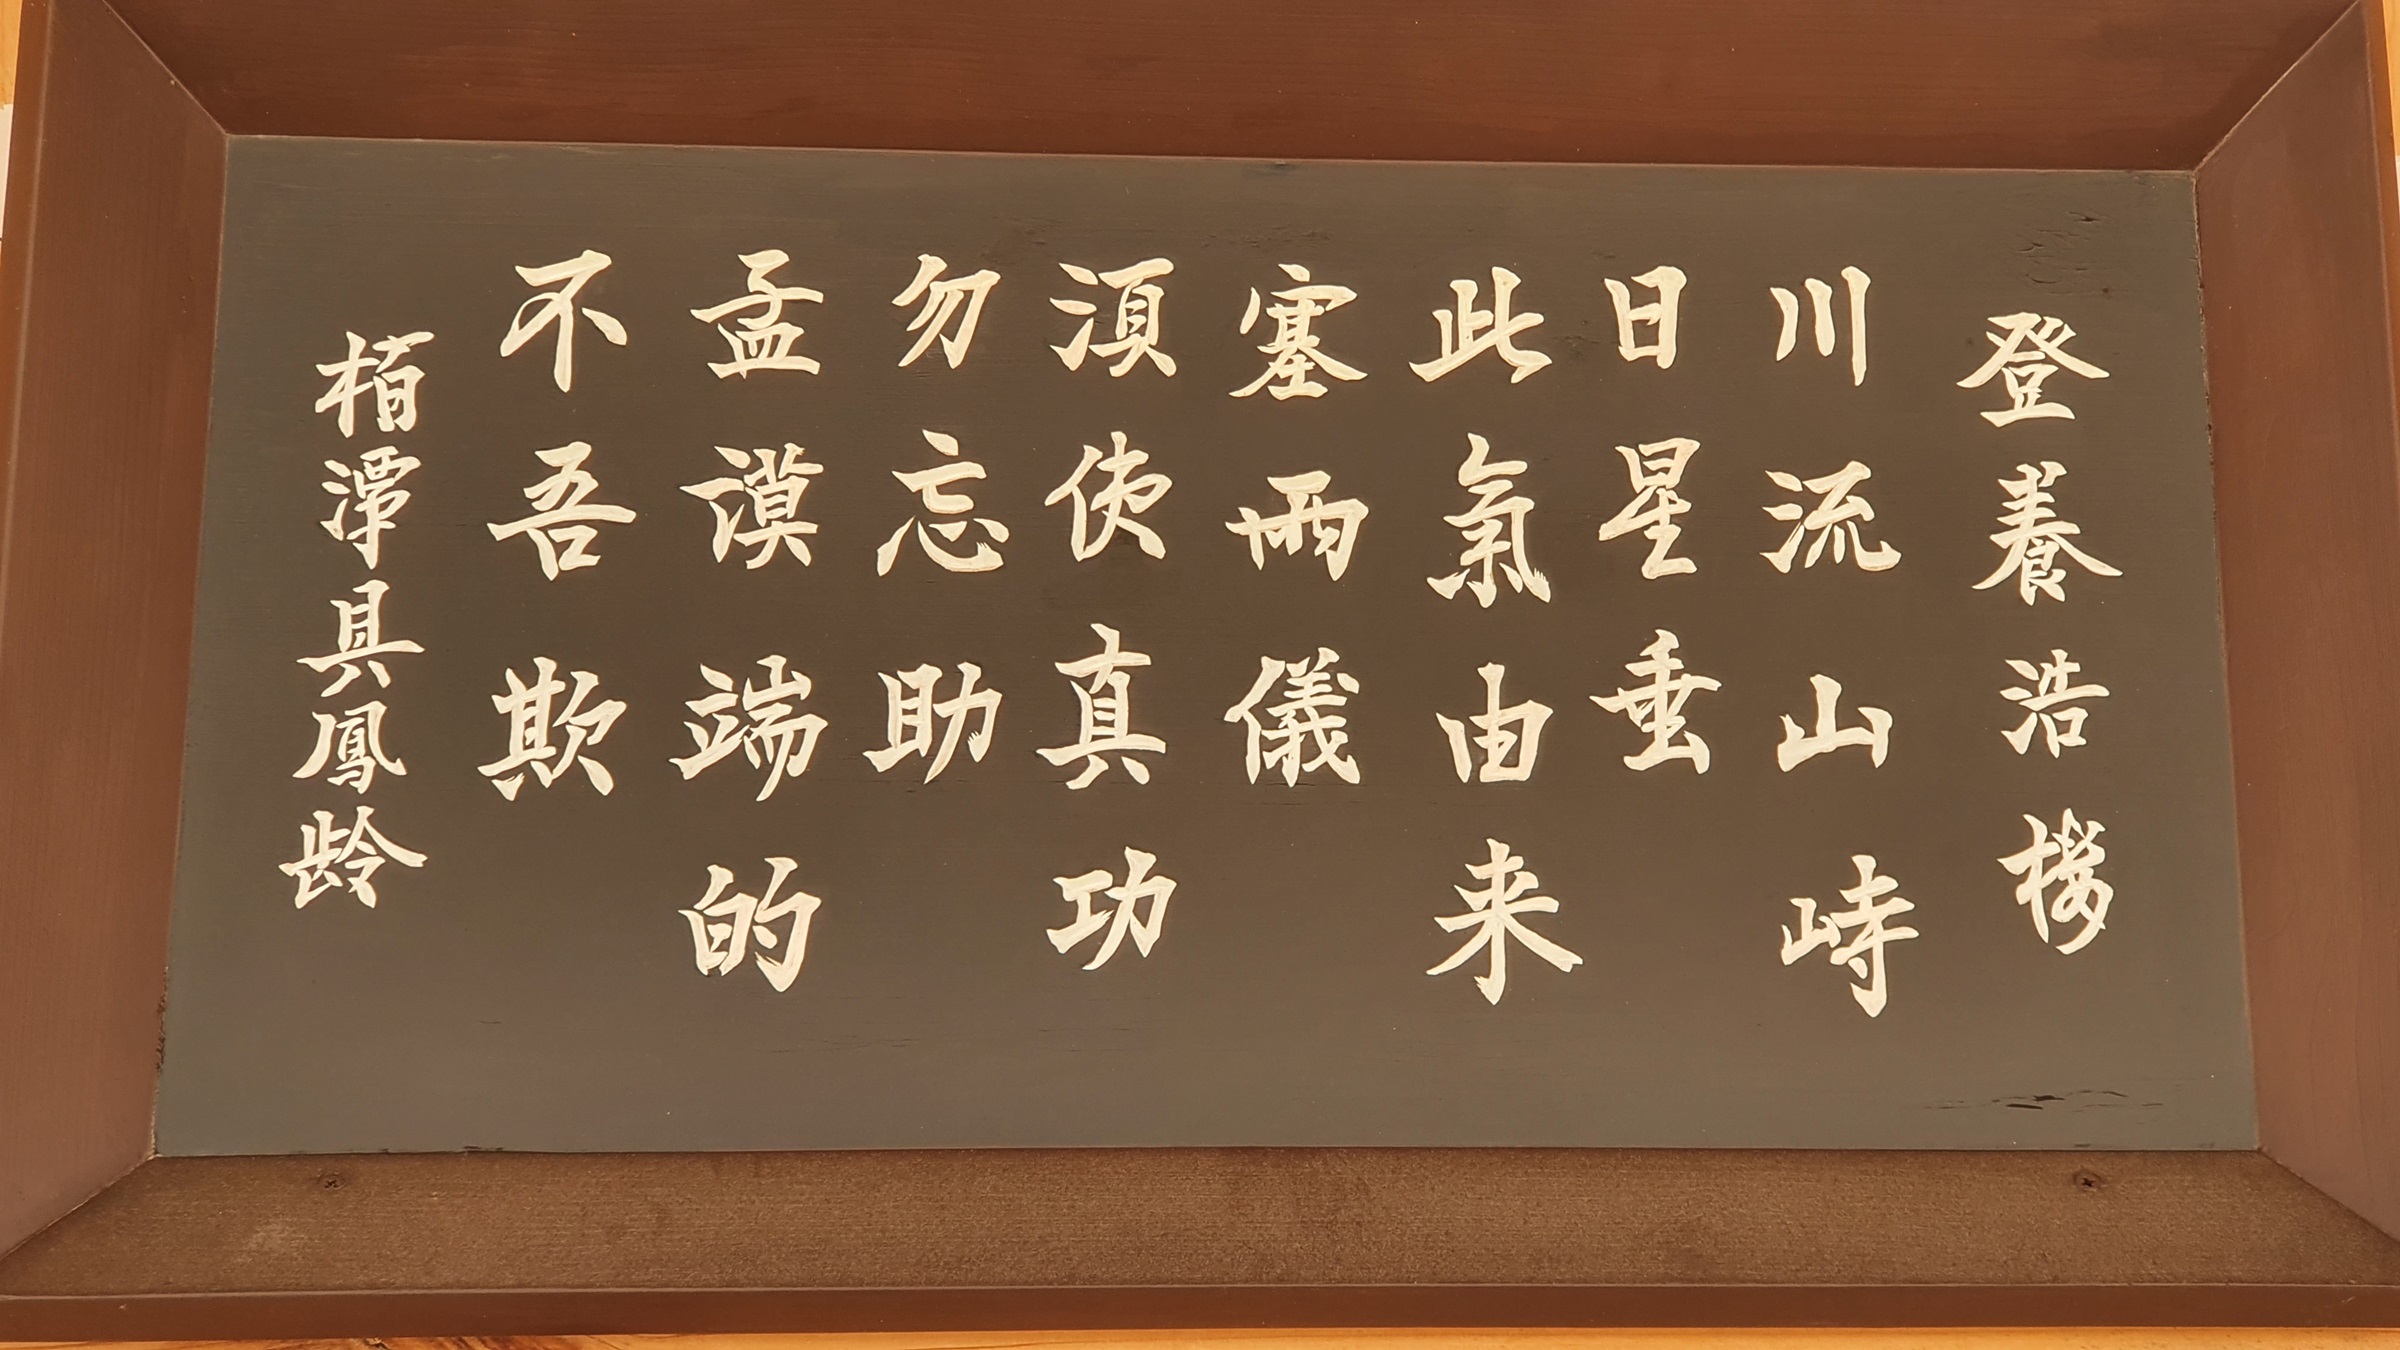 登養浩樓
川流山峙
日星垂
此氣由来
塞兩儀
湏使真功
勿忘助
孟謨端的
不吾欺
栢潭具鳳齡